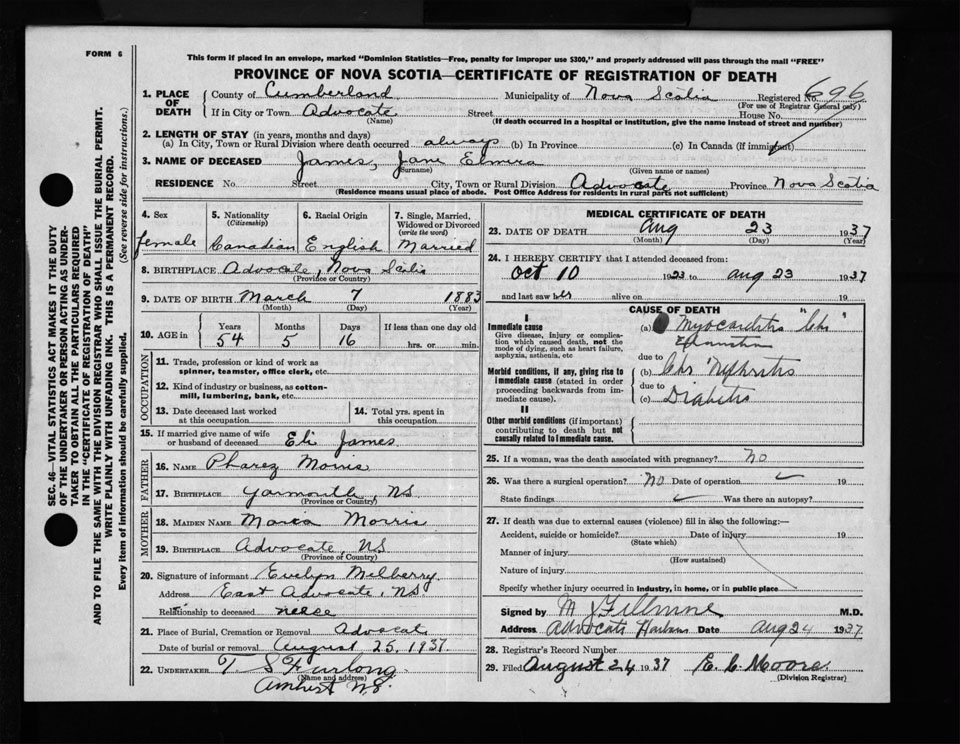 FORM 6
This form if placed in an envelope, marked "Dominion Statistics—Free, penalty for improper use $300," and properly addressed will pass through the mail "FREE"
PROVINCE OF NOVA SCOTIA—CERTIFICATE OF REGISTRATION OF DEATH
SEC. 46—VITAL STATISTICS ACT MAKES IT THE DUTY
OF THE UNDERTAKER OR PERSON ACTING AS UNDER-
TAKER TO OBTAIN ALL THE PARTICULARS REQUIRED
IN THE "CERTIFICATE OF REGISTRATION OF DEATH"
AND TO FILE THE SAME WITH THE DIVISION REGISTRAR WHO SHALL ISSUE THE BURIAL PERMIT.
WRITE PLAINLY WITH UNFADING INK. THIS IS A PERMANENT RECORD.
Every item of information should be carefully supplied. (See reverse side for instructions.)
1. PLACE OF DEATH County of Cumberland Municipality of Nova Scotia Registered No. 696
(For use of Registrar General only)
If in City or Town Advocate Street House No.
(Name) (If death occurred in a hospital or institution, give the name instead of street and number)
2. LENGTH OF STAY (in years, months and days)
(a) In City, Town or Rural Division where death occurred always (b) In Province (c) In Canada (if immigrant)
3. NAME OF DECEASED James, Jane Elmira
(Surname) (Given name or names)
RESIDENCE No. Street City, Town or Rural Division Advocate Province Nova Scotia
(Residence means usual place of abode. Post Office Address for residents in rural parts not sufficient)
4. Sex female
5. Nationality (Citizenship) Canadian
6. Racial Origin English
7. Single, Married, Widowed or Divorced (write the word) Married
8. BIRTHPLACE Advocate, Nova Scotia
(Province or Country)
9. DATE OF BIRTH March 7 1883
(Month) (Day) (Year)
10. AGE in Years 54 Months 5 Days 16 If less than one day old hrs. or min.
OCCUPATION
11. Trade, profession or kind of work as spinner, teamster, office clerk, etc.
12. Kind of industry or business, as cotton-mill, lumbering, bank, etc.
13. Date deceased last worked at this occupation
14. Total yrs. spent in this occupation
15. If married give name of wife or husband of deceased Eli James
FATHER
16. NAME Pharez Morris
17. BIRTHPLACE Yarmouth, NS
(Province or Country)
MOTHER
18. MAIDEN NAME Maria Morris
19. BIRTHPLACE Advocate, NS
(Province or Country)
20. Signature of informant Evelyn Melberry
Address East Advocate, NS.
Relationship to deceased neice
21. Place of Burial, Cremation or Removal Advocate
Date of burial or removal August 25, 1937.
22. UNDERTAKER T S Furlong
(Name and address)
Amherst N.S.
MEDICAL CERTIFICATE OF DEATH
23. DATE OF DEATH Aug 23 1937
(Month) (Day) (Year)
24. I HEREBY CERTIFY that I attended deceased from:
Oct 10 1923 to Aug 23 1937
and last saw her alive on 19
CAUSE OF DEATH
I
Immediate cause
Give disease, injury or complication which caused death, not the mode of dying, such as heart failure, asphyxia, asthenia, etc
(a) Myocarditis "Chr
Exhaustion
due to
Morbid conditions, if any, giving rise to Immediate cause (stated in order proceeding backwards from immediate cause).
(b) Chr Nephritis
due to
(c) Diabetis
II
Other morbid conditions (if important) contributing to death but not causally related to Immediate cause.
25. If a woman, was the death associated with pregnancy? no
26. Was there a surgical operation? NO Date of operation
State findings Was there an autopsy?
27. If death was due to external causes (violence) fill in also the following:—
Accident, suicide or homicide? Date of injury 19
(State which)
Manner of injury
(How sustained)
Nature of injury
Specify whether injury occurred in industry, in home, or in public place
Signed by M J Fillmore M.D.
Address Advocate Harbour Date Aug 24 1937.
28. Registrar's Record Number
29. Filed August 24 1937 E. C. Moore.
(Division Registrar)